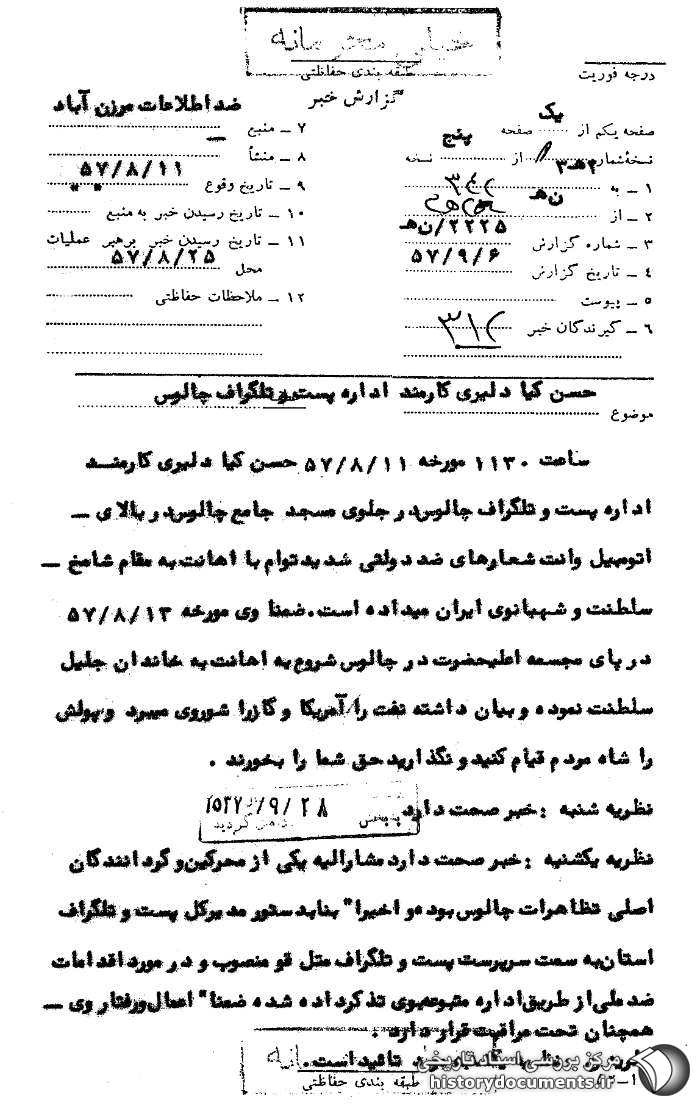 خیلی محرمانه
طبقه بندی حفاظتی
درجه فوریت
گزارش خبر
صفحه یکم از یک صفحه
نسخهٔ شماره از پنج نسخه
۱ – به ۳۴۲
۲ – از ن‌هـ
۳ – شماره گزارش ۲۲۲۵/ن‌هـ
۴ – تاریخ گزارش ۵۷/۹/۶
۵ – پیوست
۶ – گیرندگان خبر ۳۱۲
۷ – منبع ضد اطلاعات مرزن آباد
۸ – منشأ –
۹ – تاریخ وقوع ۵۷/۸/۱۱
۱۰ – تاریخ رسیدن خبر به منبع
۱۱ – تاریخ رسیدن خبر برهبر عملیات
محل ۵۷/۸/۲۵
۱۲ – ملاحظات حفاظتی
موضوع حسن کیا دلیری کارمند اداره پست و تلگراف چالوس
ساعت ۱۱۳۰ مورخه ۵۷/۸/۱۱ حسن کیا دلیری کارمنـد
اداره پست و تلگراف چالوس در جلوی مسجد جامع چالوس در بالای –
اتومبیل وانت شعارهای ضد دولتی شدید توام با اهانت به مقام شامخ –
سلطنت و شهبانوی ایران میداده است. ضمنا وی مورخه ۵۷/۸/۱۳
در پای مجسمه اعلیحضرت در چالوس شروع به اهانت به خاندان جلیل
سلطنت نموده و بیان داشته نفت را آمریکا و گاز را شوروی میبرد و پولش
را شاه مردم قیام کنید و نگذارید حق شما را بخورند .
نظریه شنبه : خبر صحت دارد
۲۸ /۹/
نظریه یکشنبه : خبر صحت دارد مشارالیه یکی از محرکین و گردانندگان
اصلی تظاهرات چالوس بوده و اخیرا" بنا بدستور مدیرکل پست و تلگراف
استان به سمت سرپرست پست و تلگراف متل قو منصوب و در مورد اقدامات
ضد ملی از طریق اداره متبوعه بوی تذکر داده شده ضمنا" اعمال و رفتار وی –
همچنان تحت مراقبت قرار دارد .
تائید است .
طبقه بندی حفاظتی
مرکز بررسی اسناد تاریخی
historydocuments.ir